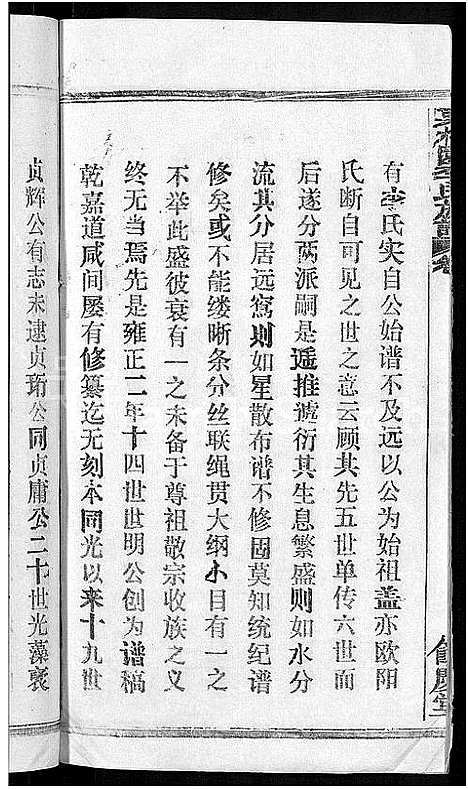 有李氏实自公始谱不及远以公为始祖盖亦欧阳
氏断自可见之世之意云顾其先五世单传六世而
后遂分两派嗣是递推递衍其生息繁盛则如水分
流其分居远寫则如星散布谱不修固莫知统纪谱
修矣或不能缕晰条分丝联绳贯大纲小目有一之
不举此盛彼衰有一之未备于尊祖敬宗收族之义
终无当焉先是雍正二年十四世世明公创为谱稿
乾嘉道咸间屡有修纂迄无刻本同光以来十九世
贞辉公有志未逮贞珩公同贞庸公二十世光藻裒
李氏族谱卷
余庆堂